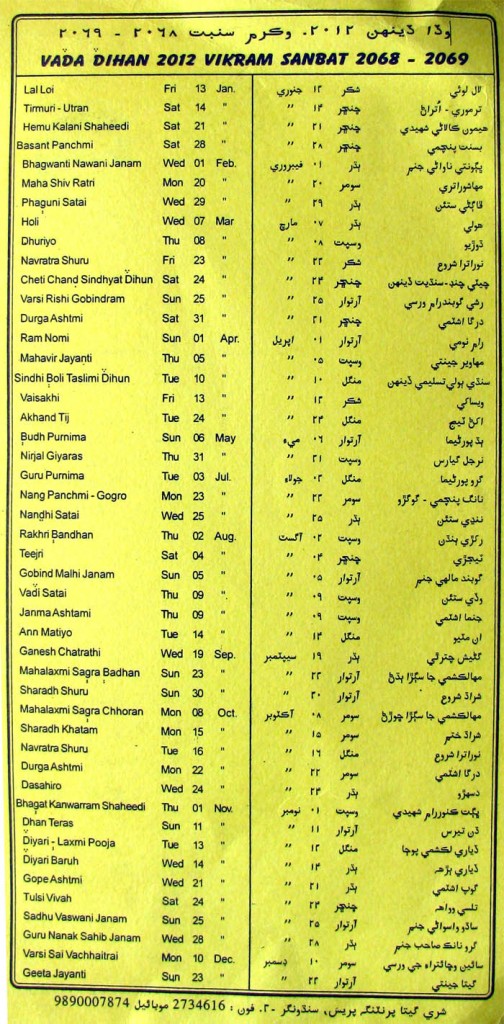 وڏا ڏينهن ٢٠١٢، وڪرم سنبت ٢٠٦٨ - ٢٠٦٩
VADA DIHAN 2012 VIKRAM SANBAT 2068 - 2069
Lal Loi Fri 13 Jan. لال لوئي شڪر ١٣ جنوري
Tirmuri - Utran Sat 14 " ترموري - اُتراڻ ڇنڇر ١٤ "
Hemu Kalani Shaheedi Sat 21 " هيمون ڪالاڻي شهيدي ڇنڇر ٢١ "
Basant Panchmi Sat 28 " بسنت پنچمي ڇنڇر ٢٨ "
Bhagwanti Nawani Janam Wed 01 Feb. ڀڳونتي ناواڻي جنم ٻڌر ٠١ فيبروري
Maha Shiv Ratri Mon 20 " مهاشوراتري سومر ٢٠ "
Phaguni Satai Wed 29 " ڦاڳڻي ستئن ٻڌر ٢٩ "
Holi Wed 07 Mar هولي ٻڌر ٠٧ مارچ
Dhuriyo Thu 08 " ڌوڙيو وسپت ٠٨ "
Navratra Shuru Fri 23 " نوراترا شروع شڪر ٢٣ "
Cheti Chand Sindhyat Dihun Sat 24 " چيٽي چنڊ-سنڌيت ڏينهن ڇنڇر ٢٤ "
Varsi Rishi Gobindram Sun 25 " رشي گوبندرام ورسي آرتوار ٢٥ "
Durga Ashtmi Sat 31 " درگا اشٽمي ڇنڇر ٣١ "
Ram Nomi Sun 01 Apr. رام نومي آرتوار ٠١ اپريل
Mahavir Jayanti Thu 05 " مهاوير جينتي وسپت ٠٥ "
Sindhi Boli Taslimi Dihun Tue 10 " سنڌي ٻولي تسليمي ڏينهن منگل ١٠ "
Vaisakhi Fri 13 " ويساکي شڪر ١٣ "
Akhand Tij Tue 24 " اکڻ ٽيج منگل ٢٤ "
Budh Purnima Sun 06 May ٻڌ پورڻيما آرتوار ٠٦ ميء
Nirjal Giyaras Thu 31 " نرجل گيارس وسپت ٣١ "
Guru Purnima Tue 03 Jul. گرو پورڻيما منگل ٠٣ جولاء
Nang Panchmi - Gogro Mon 23 " نانگ پنچمي - گوگڙو سومر ٢٣ "
Nandhi Satai Wed 25 " ننڍي ستئن ٻڌر ٢٥ "
Rakhri Bandhan Thu 02 Aug. رکڙي ٻنڌن وسپت ٠٢ آگسٽ
Teejri Sat 04 " ٽيجڙي ڇنڇر ٠٤ "
Gobind Malhi Janam Sun 05 " گوبند مالهي جنم آرتوار ٠٥ "
Vadi Satai Thu 09 " وڏي ستئن وسپت ٠٩ "
Janma Ashtami Thu 09 " جنما اشٽمي وسپت ٠٩ "
Ann Matiyo Tue 14 " ان مٽيو منگل ١٤ "
Ganesh Chatrathi Wed 19 Sep. گڻيش چترٿي ٻڌر ١٩ سيپٽمبر
Mahalaxmi Sagra Badhan Sun 23 " مهالڪشمي جا سڳڙا ٻڌڻ آرتوار ٢٣ "
Sharadh Shuru Sun 30 " شراڌ شروع آرتوار ٣٠ "
Mahalaxmi Sagra Chhoran Mon 08 Oct. مهالڪشمي جا سڳڙا ڇوڙڻ سومر ٠٨ آڪٽوبر
Sharadh Khatam Mon 15 " شراڌ ختم سومر ١٥ "
Navratra Shuru Tue 16 " نوراترا شروع منگل ١٦ "
Durga Ashtmi Mon 22 " درگا اشٽمي سومر ٢٢ "
Dasahiro Wed 24 " دسهڙو ٻڌر ٢٤ "
Bhagat Kanwarram Shaheedi Thu 01 Nov. ڀڳت ڪنوررام شهيدي وسپت ٠١ نومبر
Dhan Teras Sun 11 " ڌن تيرس آرتوار ١١ "
Diyari - Laxmi Pooja Tue 13 " ڏياري لڪشمي پوڄا منگل ١٣ "
Diyari Baruh Wed 14 " ڏياري ٻڙهه ٻڌر ١٤ "
Gope Ashtmi Wed 21 " گوپ اشٽمي ٻڌر ٢١ "
Tulsi Vivah Sat 24 " تلسي وواهه ڇنڇر ٢٤ "
Sadhu Vaswani Janam Sun 25 " ساڌو واسواڻي جنم آرتوار ٢٥ "
Guru Nanak Sahib Janam Wed 28 " گرو نانڪ صاحب جنم ٻڌر ٢٨ "
Varsi Sai Vachhaitrai Mon 10 Dec. سائين وڇائتراءِ جي ورسي سومر ١٠ ڊسمبر
Geeta Jayanti Sun 23 " گيتا جينتي آرتوار ٢٣ "
شري گيتا پرنٽنگ پريس، سنڌونگر -٢. فون : 2734616 موبائيل 9890007874